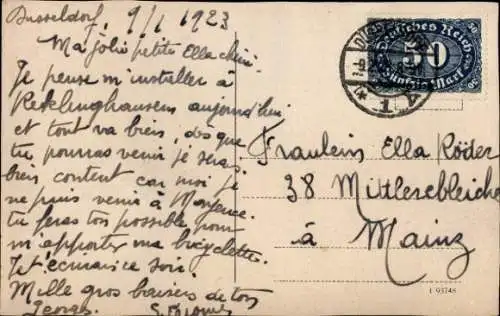 Dusseldorf, 9/1 1923
Ma jolie petite Ella chérie
Je pense m'installer à
Recklinghausen aujourd'hui
et tout va bien, dès que
tu pourras venir je serai
bien content car moi je
ne puis venir à Mayence.
tu feras ton possible pour
m'apporter ma bicyclette.
Je t'écrirai ce soir.
Mille gros baisers de ton
Georges.
Deutsches Reich
50
Fünfzig Mark
Fräulein Ella Röder
38 Mittlerebleiche
à Mainz
1 93748